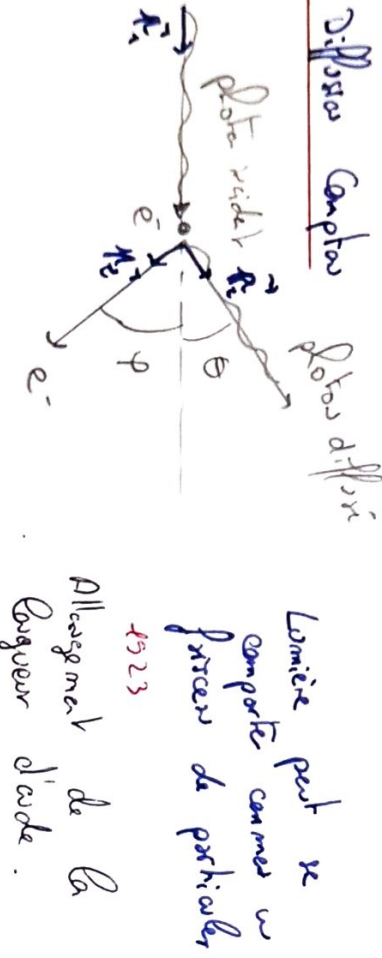 Diffusion Compton
photon incident
photon diffusé
e⁻
θ
φ
e⁻
Lumière peut se
comporte comme un
faisceau de particules
1923
Allongement de la
longueur d'onde.